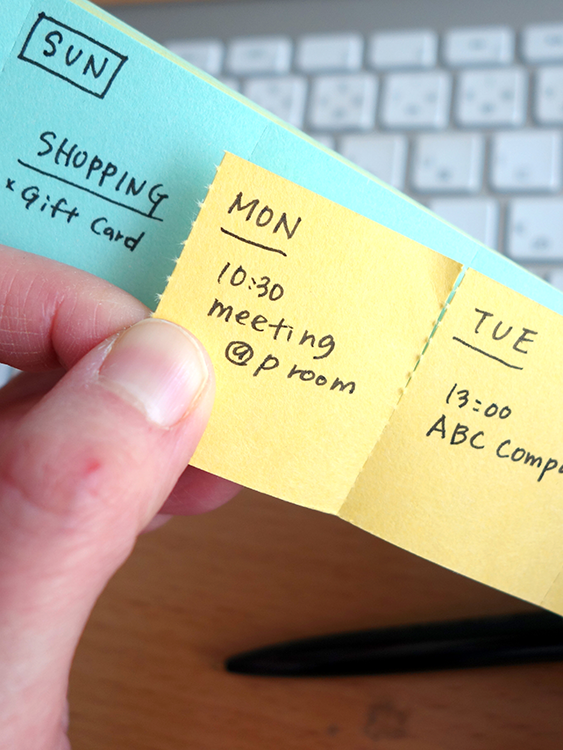 SUN
SHOPPING
× Gift Card
MON
10:30
meeting
@p room
TUE
13:00
ABC